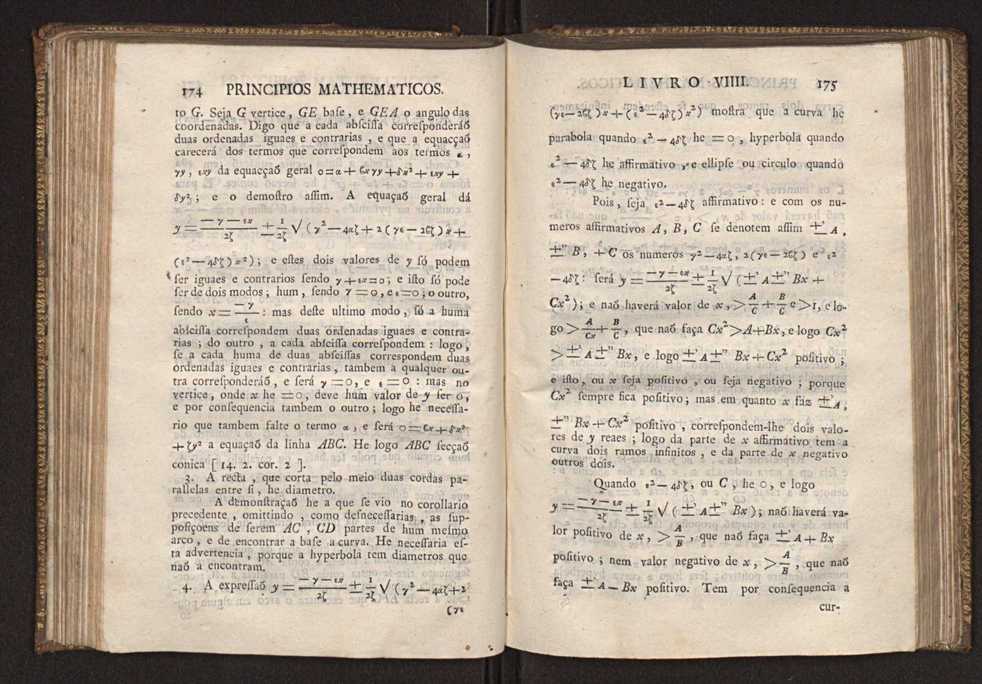 174 PRINCIPIOS MATHEMATICOS.
to G. Seja G vertice, GE base, e GEA o angulo das
coordenadas. Digo que a cada abscissa corresponderáõ
duas ordenadas iguaes e contrarias, e que a equacçaõ
carecerá dos termos que correspondem aos termos α,
γy, εxy da equacçaõ geral 0=α+ϐx γy+δx²+εxy+
ζy²; e o demostro assim. A equaçaõ geral dá
y=(−γ−εx)/2ζ ± 1/2ζ √(γ²−4αζ+2(γε−2ϐζ)x+
(ε²−4δζ)x²); e estes dois valores de y só podem
ser iguaes e contrarios sendo γ+εx=0; e isto só póde
ser de dois modos; hum, sendo γ=0, e ε=0; o outro,
sendo x=−γ/ε: mas deste ultimo modo, só a huma
abscissa correspondem duas ordenadas iguaes e contra-
rias; do outro, a cada abscissa correspondem: logo,
se a cada huma de duas abscissas correspondem duas
ordenadas iguaes e contrarias, tambem a qualquer ou-
tra corresponderáõ, e será γ=0, e ε=0: mas no
vertice, onde x he =0, deve hum valor de y ser 0,
e por consequencia tambem o outro; logo he necessa-
rio que tambem falte o termo α, e será 0=ϐx+δx²
+ζy² a equaçaõ da linha ABC. He logo ABC secçaõ
conica [ 14. 2. cor. 2 ].
3. A recta, que corta pelo meio duas cordas pa-
rallelas entre si, he diametro.
A demonstraçaõ he a que se vio no corollario
precedente, omittindo, como desnecessarias, as sup-
posiçoens de serem AC, CD partes de hum mesmo
arco, e de encontrar a base a curva. He necessaria es-
ta advertencia, porque a hyperbola tem diametros que
naõ a encontram.
4. A expressaõ y=(−γ−εx)/2ζ ± 1/2ζ √(γ²−4αζ+2
(γε
LIVRO VIIII. 175
(γε−2ϐζ)x+(ε²−4δζ)x²) mostra que a curva he
parabola quando ε²−4δζ he =0, hyperbola quando
ε²−4δζ he affirmativo, e ellipse ou circulo quando
ε²−4δζ he negativo.
Pois, seja ε²−4δζ affirmativo: e com os nu-
meros affirmativos A, B, C se denotem assim ±' A,
±'' B, +C os numeros γ²−4αζ, 2(γε−2ϐζ) e ε²
−4δζ: será y=(−γ−εx)/2ζ ± 1/2ζ √(±' A±'' Bx+
Cx²); e naõ haverá valor de x, > A/C + B/C e >1, e lo-
go > A/Cx + B/C, que naõ faça Cx²>A+Bx, e logo Cx²
>±' A±'' Bx, e logo ±' A±'' Bx+Cx² positivo;
e isto, ou x seja positivo, ou seja negativo; porque
Cx² sempre fica positivo; mas em quanto x faz ±' A,
±'' Bx+Cx² positivo, correspondem-lhe dois valo-
res de y reaes; logo da parte de x affirmativo tem a
curva dois ramos infinitos, e da parte de x negativo
outros dois.
Quando ε²−4δζ, ou C, he 0, e logo
y=(−γ−εx)/2ζ ± 1/2ζ √(±' A±'' Bx); naõ haverá va-
lor positivo de x, > A/B, que naõ faça ±' A+Bx
positivo; nem valor negativo de x, > A/B, que naõ
faça ±' A−Bx positivo. Tem por consequencia a
cur-